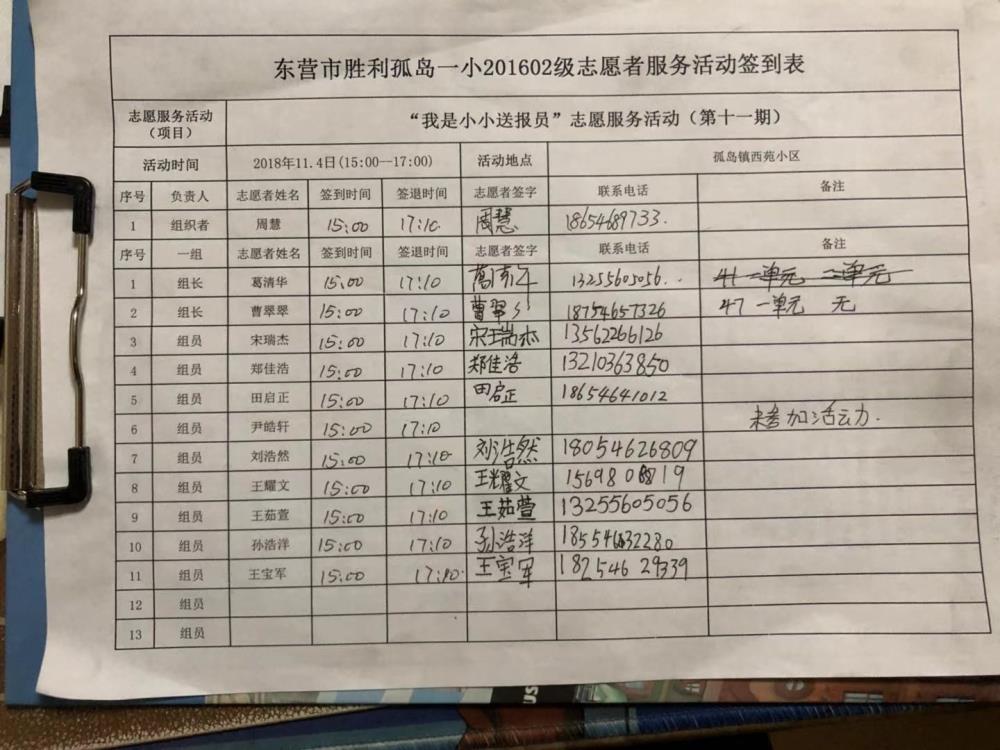 东营市胜利孤岛一小201602级志愿者服务活动签到表
志愿服务活动（项目） “我是小小送报员”志愿服务活动（第十一期）
活动时间 2018年11.4日(15:00--17:00) 活动地点 孤岛镇西苑小区
序号 负责人 志愿者姓名 签到时间 签退时间 志愿者签字 联系电话 备注
1 组织者 周慧 15:00 17:10 周慧 18654689733.
序号 一组 志愿者姓名 签到时间 签退时间 志愿者签字 联系电话 备注
1 组长 葛清华 15:00 17:10 13255605056 41 一单元 二单元
2 组长 曹翠翠 15:00 17:10 曹翠翠 18754657326 47 一单元 无
3 组员 宋瑞杰 15:00 17:10 宋瑞杰 13562266126
4 组员 郑佳浩 15:00 17:10 郑佳浩 13210363850
5 组员 田启正 15:00 17:10 田启正 18654641012
6 组员 尹皓轩 15:00 17:10 未参加活动.
7 组员 刘浩然 15:00 17:10 刘浩然 18054626809
8 组员 王耀文 15:00 17:10 王耀文
9 组员 王茹萱 15:00 17:10 王茹萱 13255605056
10 组员 孙浩洋 15:00 17:10 孙浩洋
11 组员 王宝军 15:00 17:10 王宝军 18254629339
12 组员
13 组员